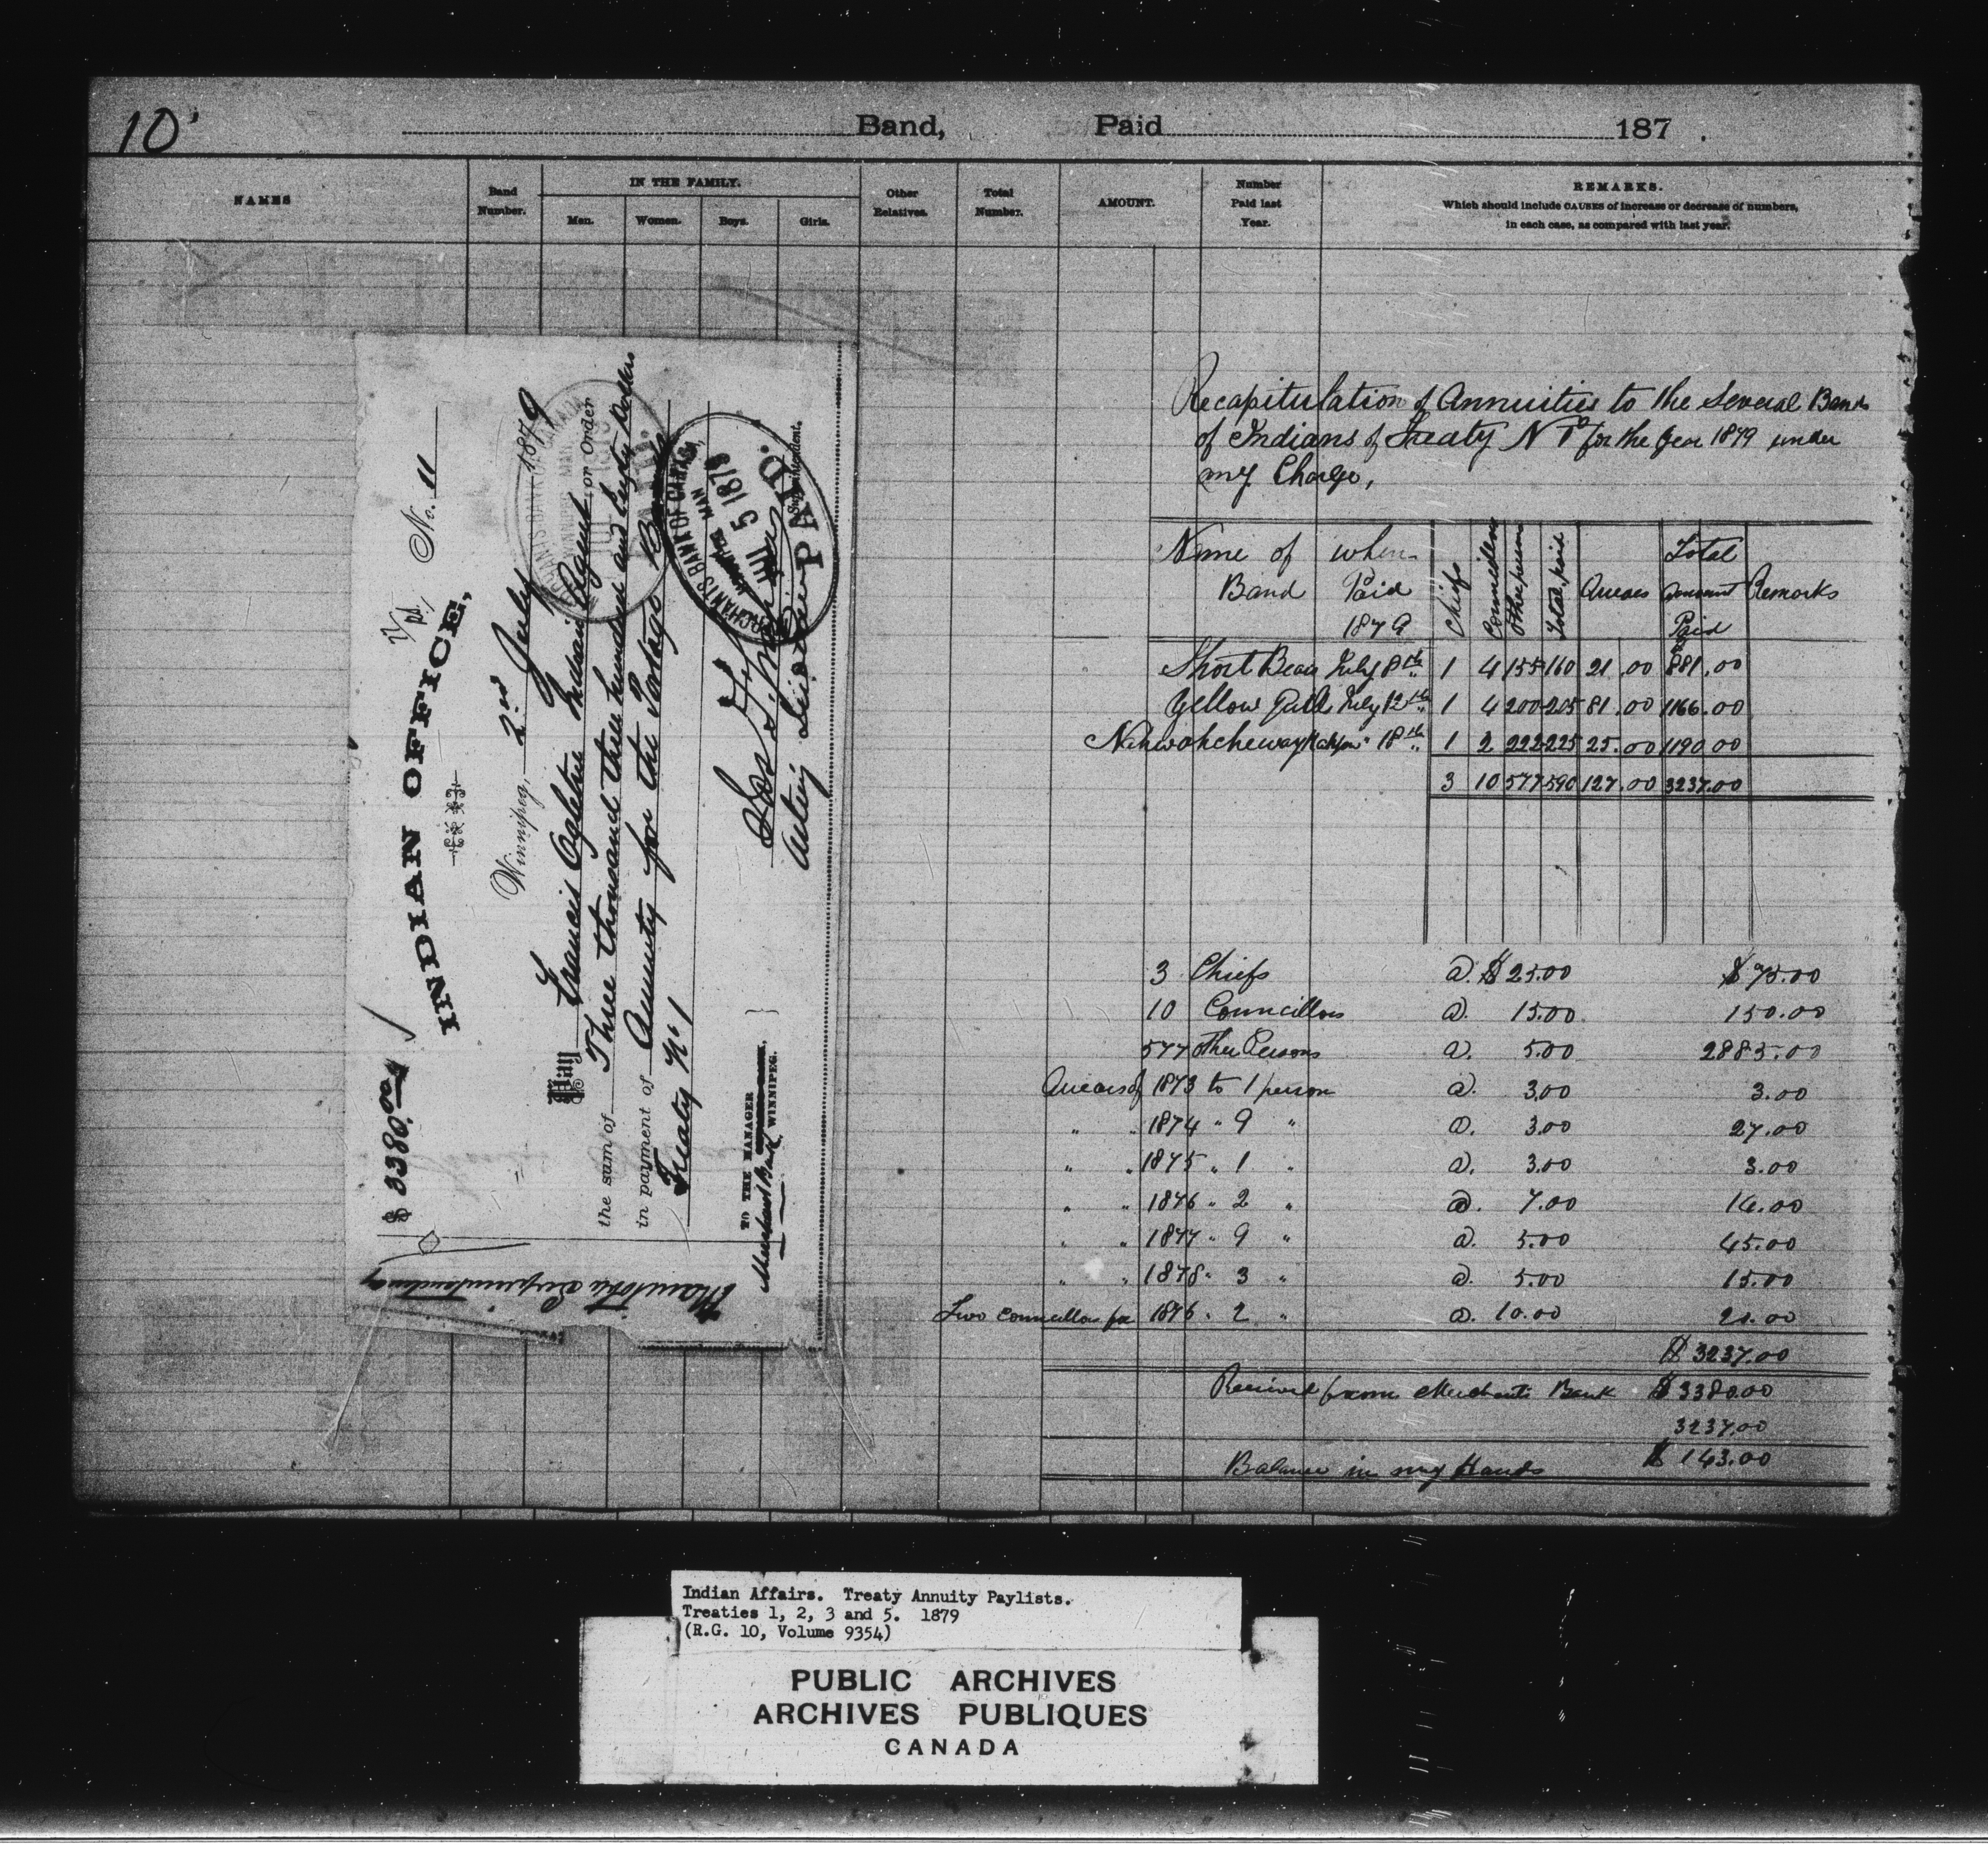 10
Band, Paid 187 .
NAMES
Band Number.
IN THE FAMILY.
Men. Women. Boys. Girls.
Other Relatives.
Total Number.
AMOUNT.
Number Paid last Year.
REMARKS.
Which should include CAUSES of increase or decrease of numbers,
in each case, as compared with last year.
$ 3380.00 No. 11
INDIAN OFFICE,
Winnipeg, 2nd July 1879
Pay Francis Ogletree Indian Agent or Order
the sum of Three thousand three hundred and Eighty Dollars
in payment of Annuity for the Portage Band
Treaty No 1
TO THE MANAGER
Merchants Bank, WINNIPEG.
Acting Superintendent.
MERCHANTS BANK OF CANADA,
WINNIPEG MAN
JUL 5 1879
PAID.
Manitoba Superintendency
Recapitulation of Annuities to the Several Bands
of Indians of Treaty No 1 for the Year 1879 under
my Charge,
Name of Band when Paid 1879 Chiefs Councillors Other persons Total paid Arrears Total Amount Paid Remarks
Short Bear July 8th 1 4 155 160 21.00 881.00
Yellow Quill July 12th 1 4 200 205 81.00 1166.00
" 18th 1 2 222 225 25.00 1190.00
3 10 577 590 127.00 3237.00
3 Chiefs @. $ 25.00 $ 75.00
10 Councillors @. 15.00 150.00
577 other Persons @. 5.00 2885.00
Arrears of 1873 to 1 person @. 3.00 3.00
" " 1874 " 9 " @. 3.00 27.00
" " 1875 " 1 " @. 3.00 3.00
" " 1876 " 2 " @. 7.00 14.00
" " 1877 " 9 " @. 5.00 45.00
" " 1878 " 3 " @. 5.00 15.00
Two Councillors for 1876 " 2 " @. 10.00 20.00
$ 3237.00
Received from Merchants Bank $ 3380.00
3237.00
Balance in my Hands $ 143.00
Indian Affairs. Treaty Annuity Paylists.
Treaties 1, 2, 3 and 5. 1879
(R.G. 10, Volume 9354)
PUBLIC ARCHIVES
ARCHIVES PUBLIQUES
CANADA